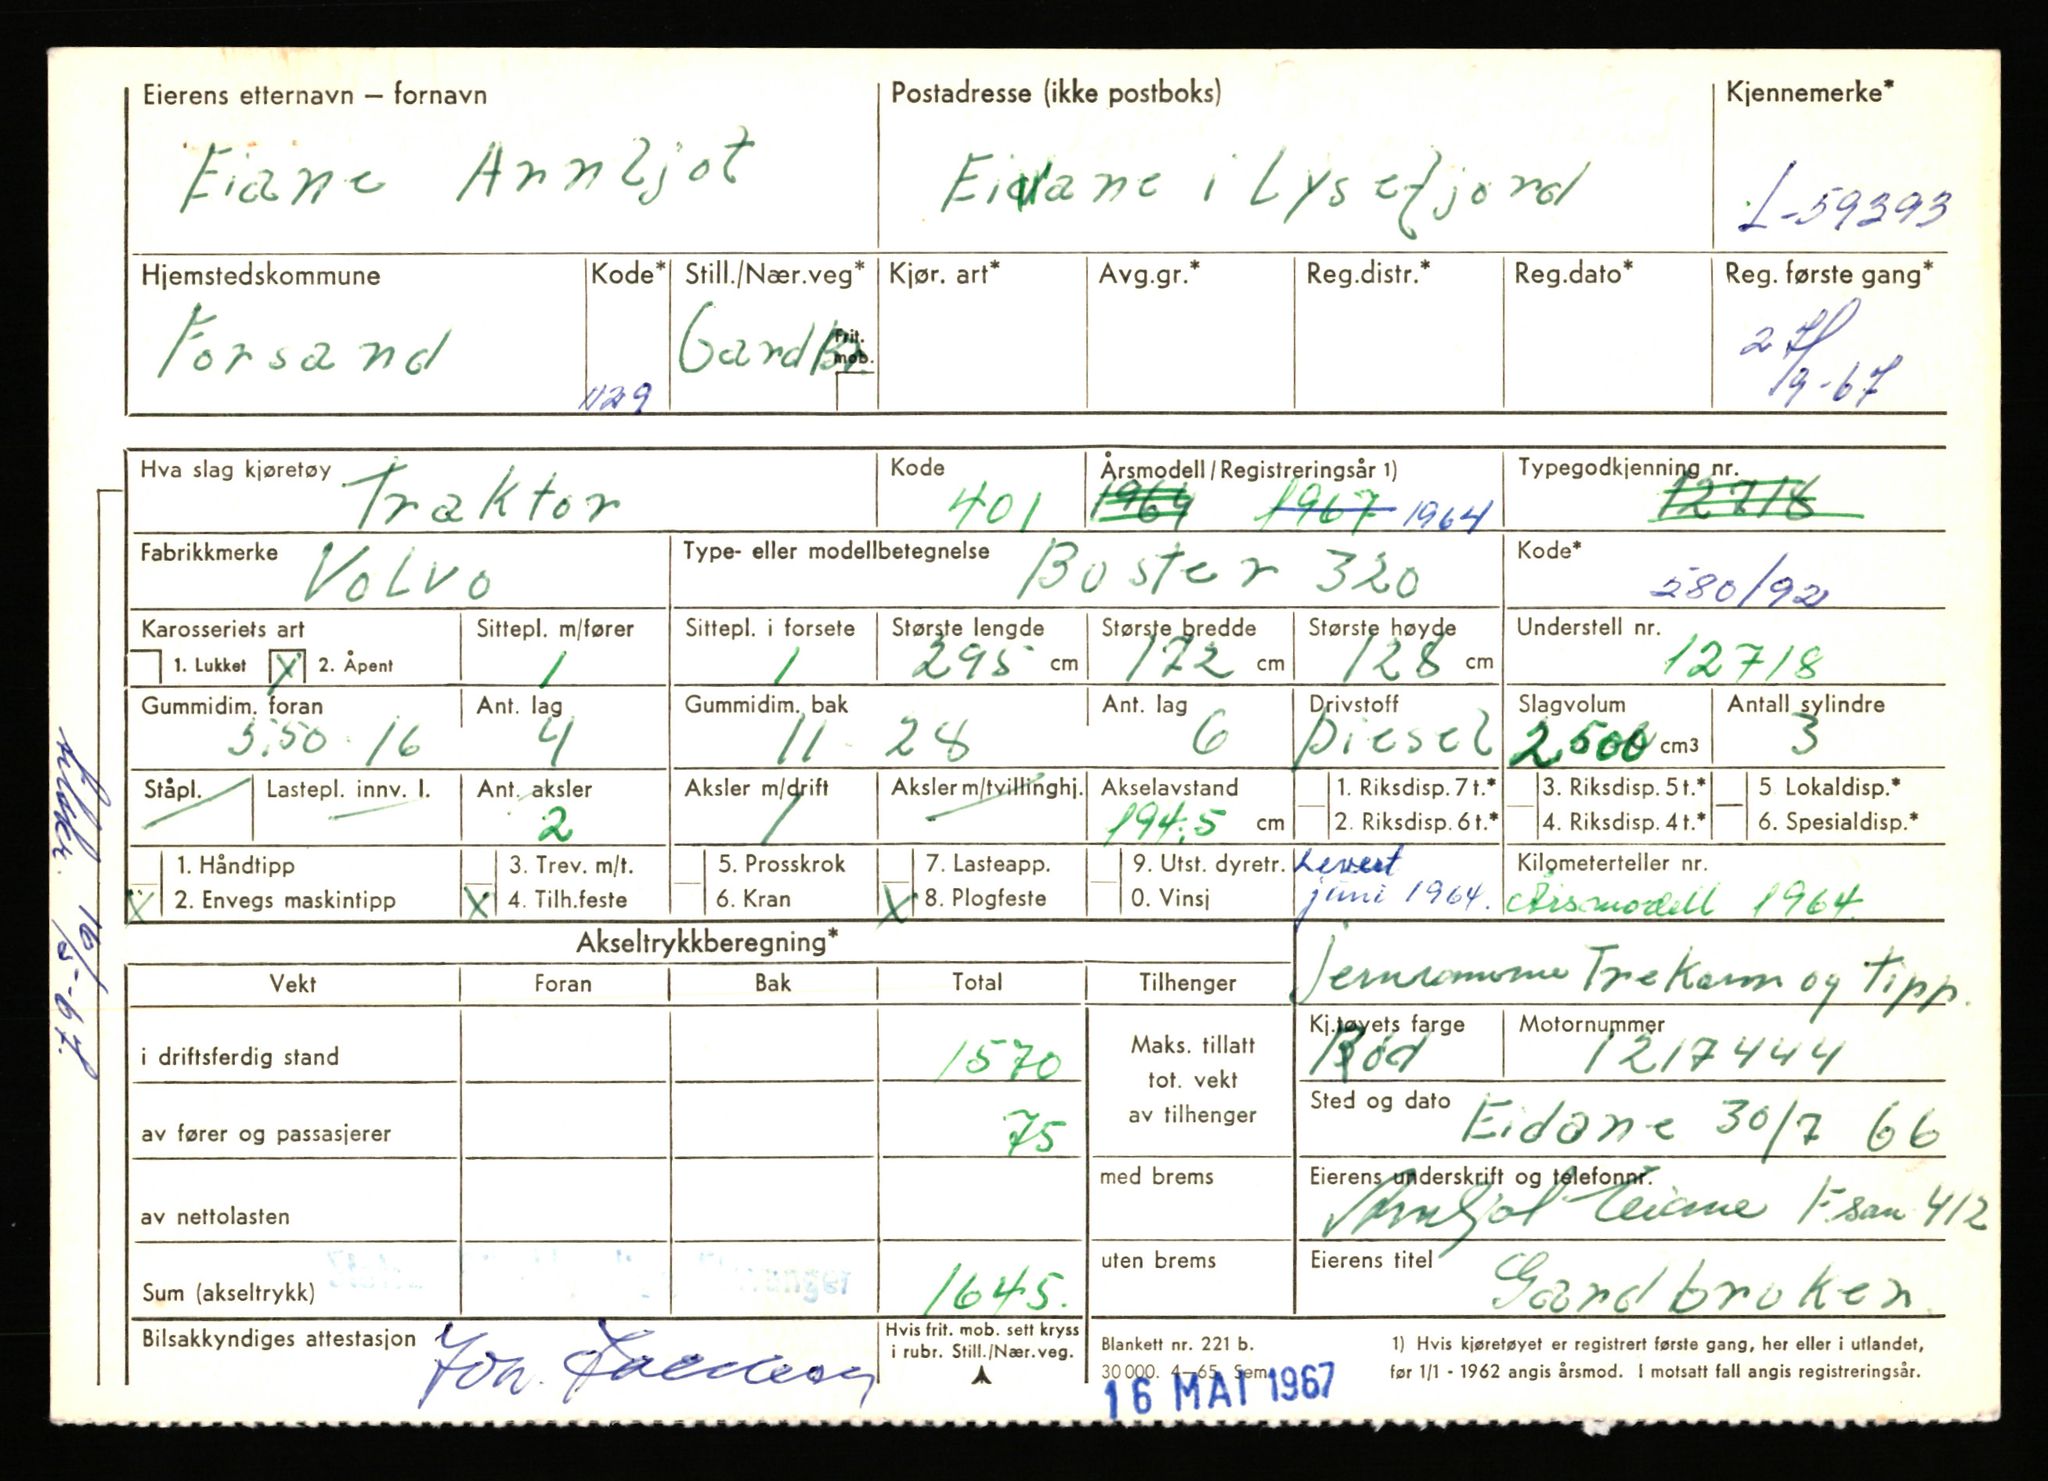 Eierens etternavn – fornavn Postadresse (ikke postboks) Kjennemerke*
Eiane Arnljot Eidane i Lysefjord L-59393
Hjemstedskommune Kode* Still./Nær.veg* Kjør. art* Avg.gr.* Reg.distr.* Reg.dato* Reg. første gang*
Forsand 1129 Gardbr. Frit. mob. 27/9-67
Hva slag kjøretøy Kode Årsmodell/Registreringsår 1) Typegodkjenning nr.
Traktor 401 1964 1967 1964 12718
Fabrikkmerke Type- eller modellbetegnelse Kode*
Volvo Boster 320 580/92
Karosseriets art Sittepl. m/fører Sittepl. i forsete Største lengde Største bredde Største høyde Understell nr.
1. Lukket X 2. Åpent 1 1 295 cm 172 cm 128 cm 12718
Gummidim. foran Ant. lag Gummidim. bak Ant. lag Drivstoff Slagvolum Antall sylindre
5.50 16 4 11 28 6 Diesel 2500 cm3 3
Ståpl. Lastepl. innv. l. Ant. aksler Aksler m/drift Aksler m/tvillinghj. Akselavstand 1. Riksdisp. 7 t.* 3. Riksdisp. 5 t.* 5 Lokaldisp.*
2 1 194.5 cm 2. Riksdisp. 6 t.* 4. Riksdisp. 4 t.* 6. Spesialdisp.*
1. Håndtipp 3. Trev. m/t. 5. Prosskrok 7. Lasteapp. 9. Utst. dyretr. Levert Kilometerteller nr.
X 2. Envegs maskintipp X 4. Tilh.feste 6. Kran X 8. Plogfeste 0. Vinsj juni 1964. Årsmodell 1964.
Akseltrykkberegning*
Vekt Foran Bak Total Tilhenger Jernramme Trekarm og tipp.
i driftsferdig stand 1570 Maks. tillatt tot. vekt av tilhenger Kj.tøyets farge Motornummer
Rød 1217444
av fører og passasjerer 75 Sted og dato Eidane 30/7 66
av nettolasten med brems Eierens underskrift og telefonnr.
Arnljot Eiane F.san 412
Sum (akseltrykk) 1645. uten brems Eierens titel Gardbruker.
Bilsakkyndiges attestasjon Hvis frit. mob. sett kryss i rubr. Still./Nær.veg.
Blankett nr. 221 b. 1) Hvis kjøretøyet er registrert første gang, her eller i utlandet,
30 000. 4–65. Sem før 1/1 - 1962 angis årsmod. I motsatt fall angis registreringsår.
16 MAI 1967
16/5-67.